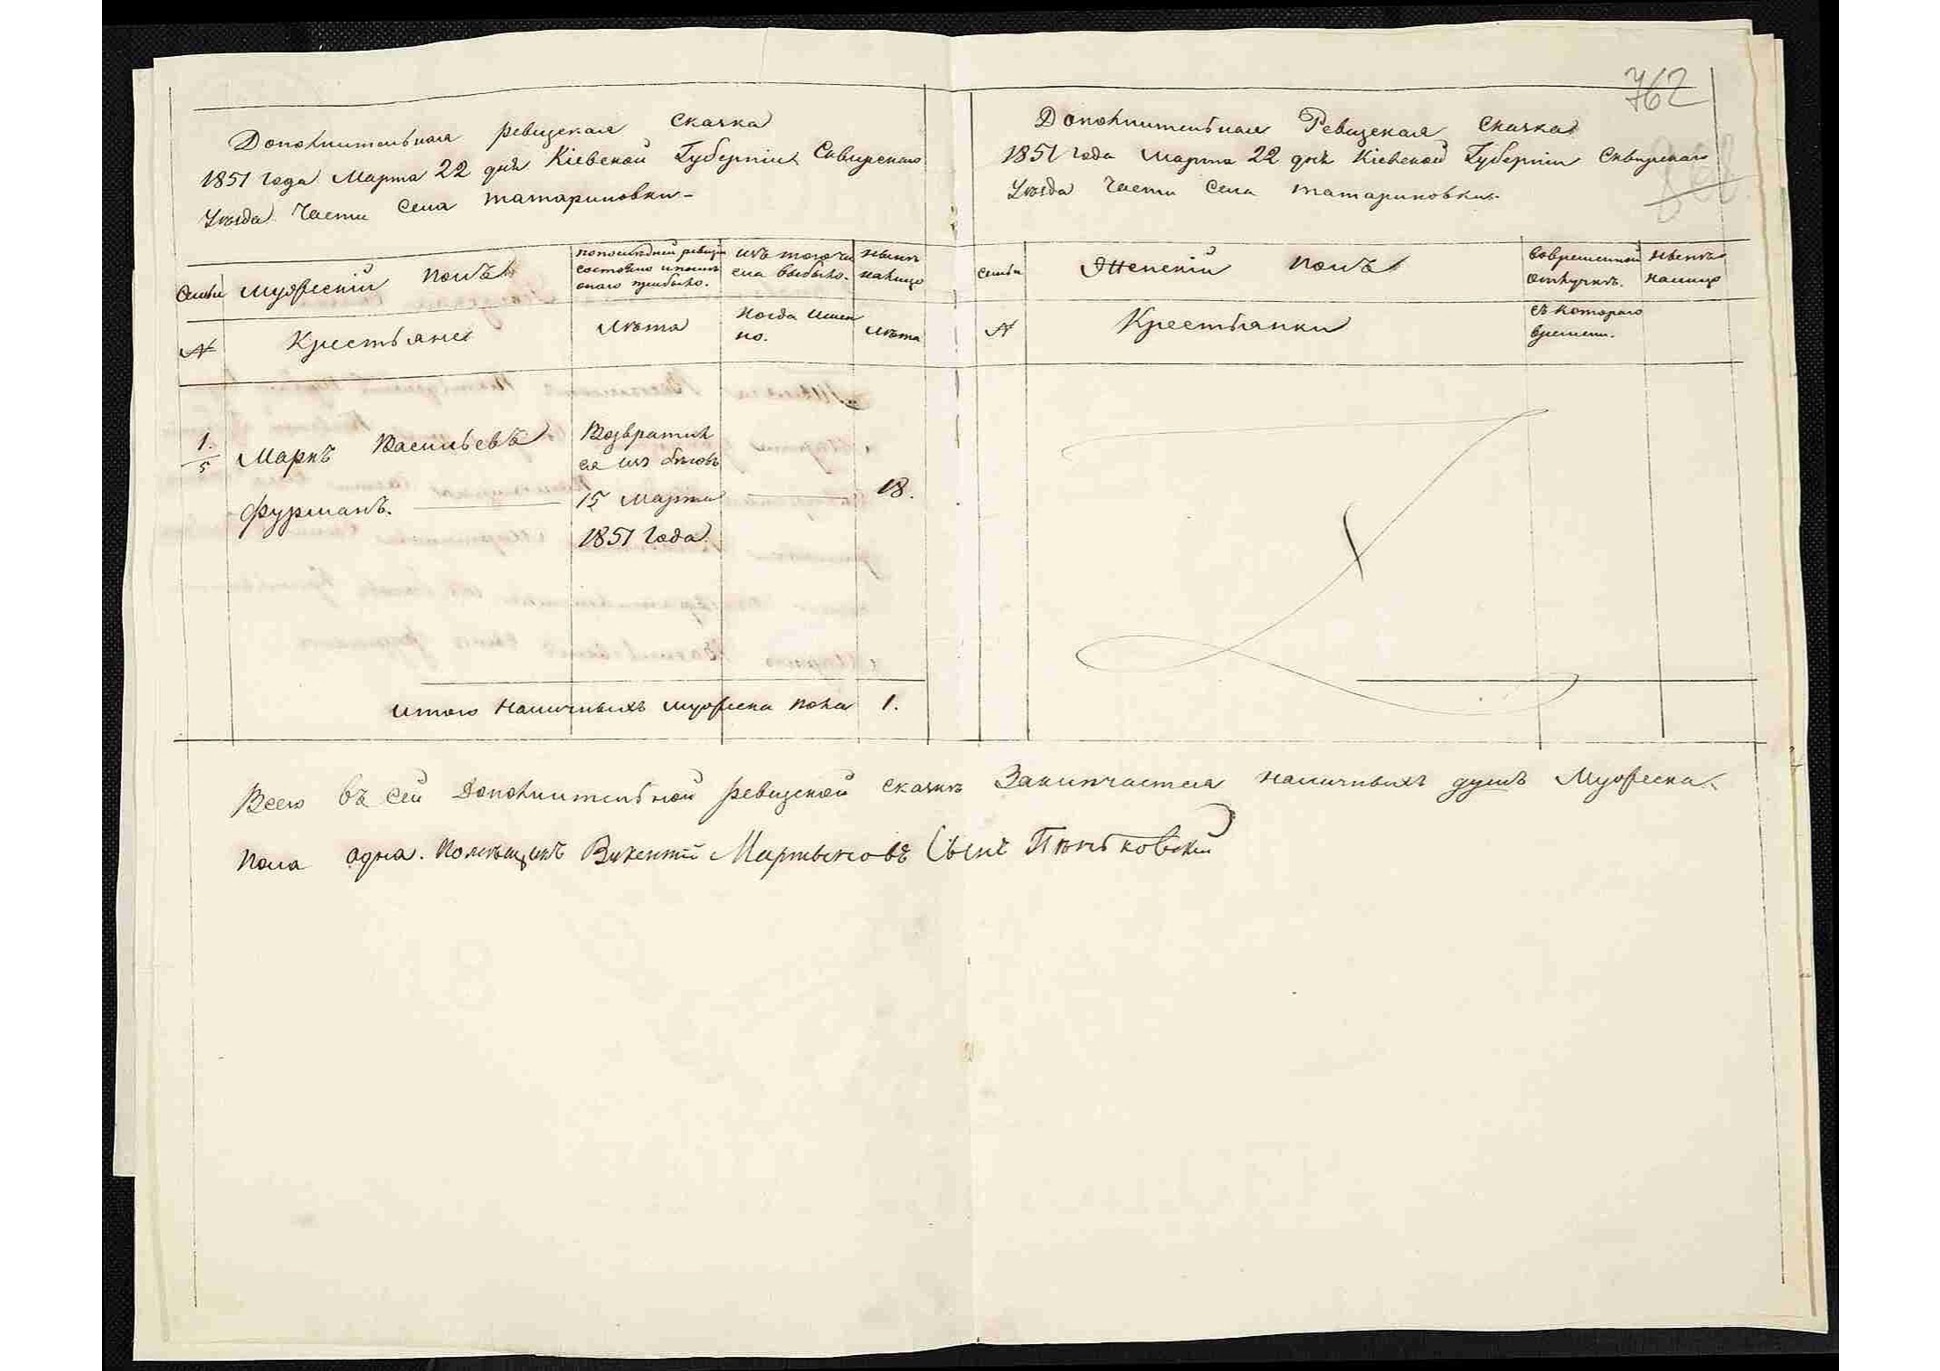 762
Дополнительная ревизская сказка
1851 года Марта 22 дня Кіевской Губерніи Сквирскаго
Уѣзда Части Села Татариновки
Семьи
Мужескій полъ
По послѣдней ревизіи
состояло и послѣ
оной прибыло.
Изъ того чи
сла выбыло.
Нынѣ
на лицо
№
Крестьяне
Лѣта
Когда имен
но.
Лѣта
1.
5
Маркъ Васильевъ
Фурманъ.
Возвратил
ся изъ бѣговъ
15 Марта
1851 года
18.
Итого наличныхъ мужеска пола 1.
Дополнительная Ревизская Сказка
1851 года Марта 22 дня Кіевской Губерніи Сквирскаго
Уѣзда Части Села Татариновки
Семьи
Женскій полъ
Во временной
отлучкѣ.
Нынѣ
на лицо
№
Крестьянки
Съ котораго
времени.
Всего въ сей Дополнительной ревизской сказкѣ Заключается наличныхъ душъ Мужеска
пола одна. Помѣщикъ Викентій Мартыновъ Сынъ Пѣньковскій